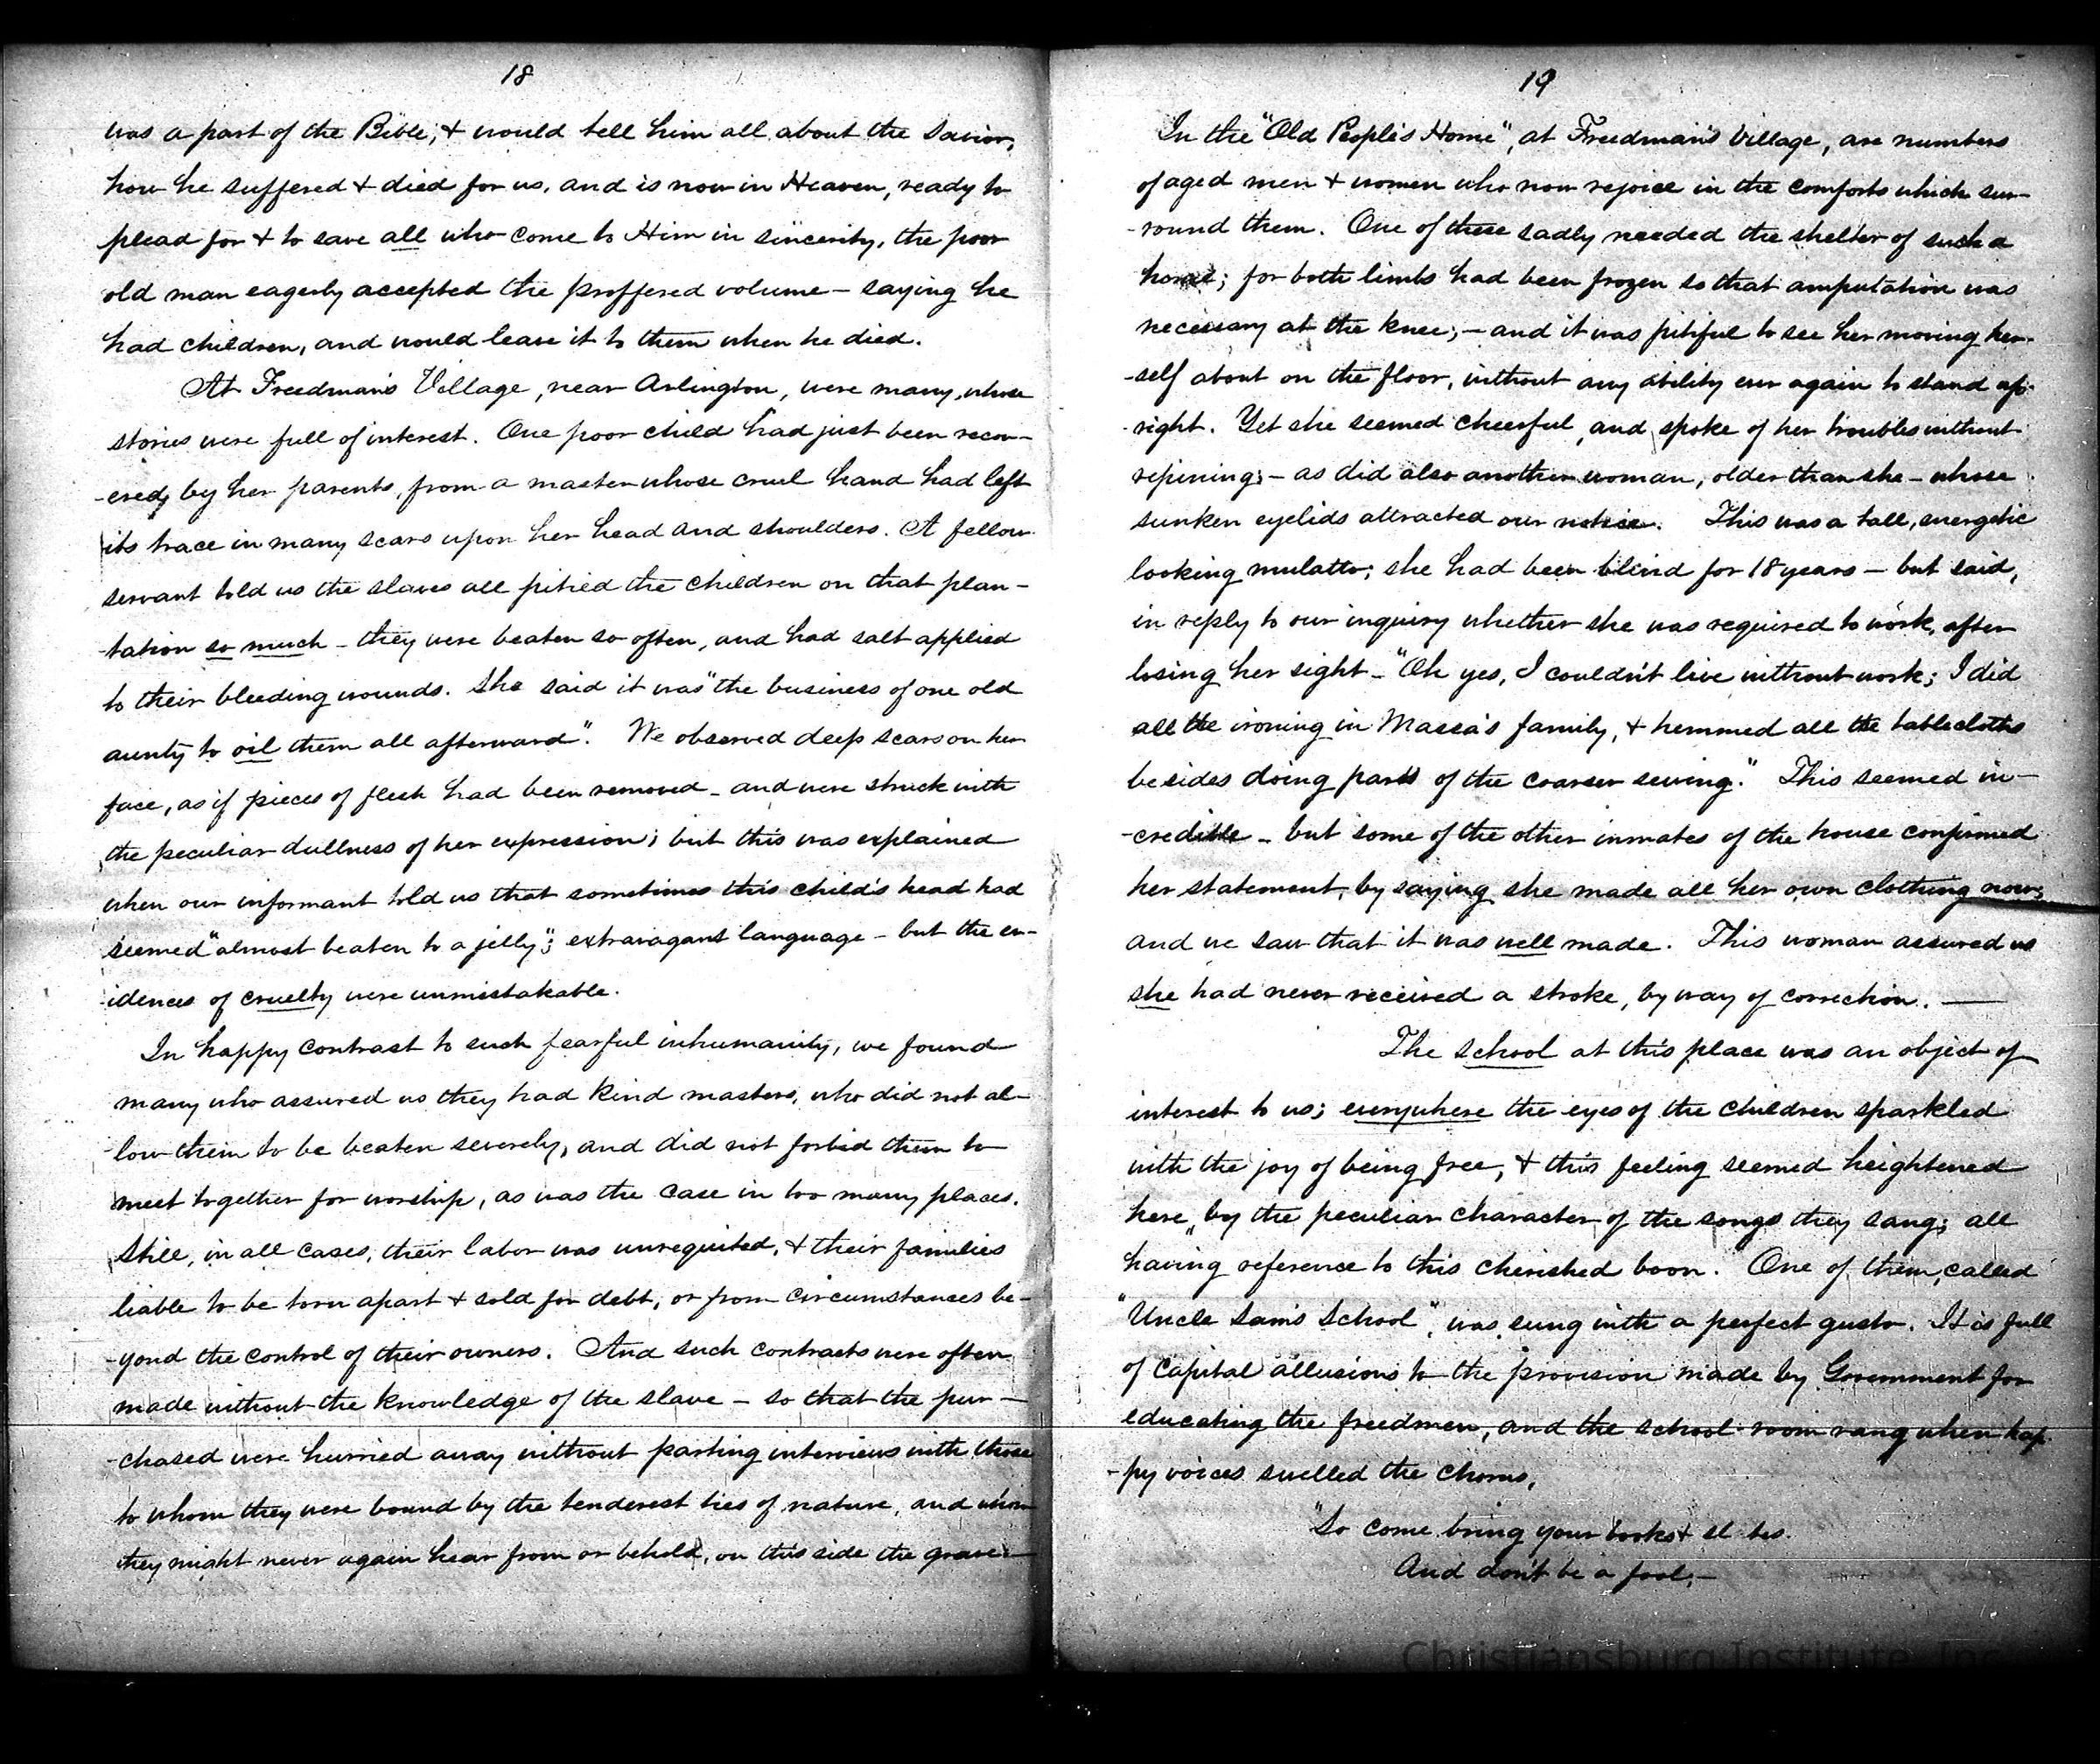 18
was a part of the Bible, & would tell him all about the Savior,
how he suffered & died for us, and is now in Heaven, ready to
plead for & to save all who come to Him in sincerity, the poor
old man eagerly accepted the proffered volume — saying he
had children, and would leave it to them when he died.
At Freedman's Village, near Arlington, were many, whose
stories were full of interest. One poor child had just been recov-
-ered, by her parents, from a master whose cruel hand had left
its trace in many scars upon her head and shoulders. A fellow
servant told us the slaves all pitied the children on that plan-
-tation so much — they were beaten so often, and had salt applied
to their bleeding wounds. She said it was "the business of one old
aunty to oil them all afterward". We observed deep scars on her
face, as if pieces of flesh had been removed — and were struck with
the peculiar dullness of her expression; but this was explained
when our informant told us that sometimes this child's head had
seemed "almost beaten to a jelly"; extravagant language — but the ev-
-idences of cruelty were unmistakable.
In happy contrast to such fearful inhumanity, we found
many who assured us they had kind masters, who did not al-
-low them to be beaten severely, and did not forbid them to
meet together for worship, as was the case in too many places.
Still, in all cases, their labor was unrequited, & their families
liable to be torn apart & sold for debt, or from circumstances be-
-yond the control of their owners. And such contracts were often
made without the knowledge of the slave — so that the pur-
-chased were hurried away without parting interviews with those
to whom they were bound by the tenderest ties of nature, and whom
they might never again hear from or behold, on this side the grave.
19
In the "Old People's Home", at Freedman's Village, are numbers
of aged men & women who now rejoice in the comforts which sur-
-round them. One of these sadly needed the shelter of such a
home; for both limbs had been frozen so that amputation was
necessary at the knee; — and it was pitiful to see her moving her-
-self about on the floor, without any ability ever again to stand up-
-right. Yet she seemed cheerful, and spoke of her troubles without
repining; — as did also another woman, older than she — whose
sunken eyelids attracted our notice. This was a tall, energetic
looking mulatto; she had been blind for 18 years — but said,
in reply to our inquiry whether she was required to work, after
losing her sight — "Oh yes, I couldn't live without work; I did
all the ironing in Massa's family, & hemmed all the tablecloths
besides doing parts of the coarser sewing." This seemed in-
-credible — but some of the other inmates of the house confirmed
her statement, by saying she made all her own clothing now;
and we saw that it was well made. This woman assured us
she had never received a stroke, by way of correction. —
The school at this place was an object of
interest to us; everywhere the eyes of the children sparkled
with the joy of being free, & this feeling seemed heightened
here, by the peculiar character of the songs they sang; all
having reference to this cherished boon. One of them, called
"Uncle Sam's School", was sung with a perfect gusto. It is full
of capital allusions to the provision made by Government for
educating the freedmen, and the school-room rang when hap-
-py voices swelled the chorus,
"So come bring your books &
And don't be a fool, —
Christiansburg Institute, Inc.